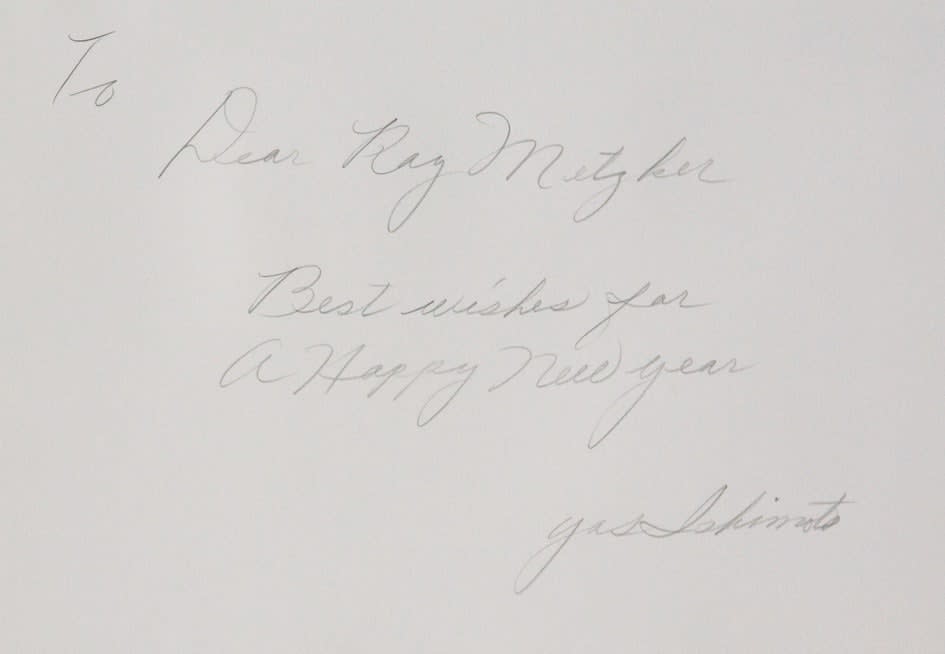 To
Dear Ray Metzker
Best wishes for
A Happy New year
yas Ishimoto